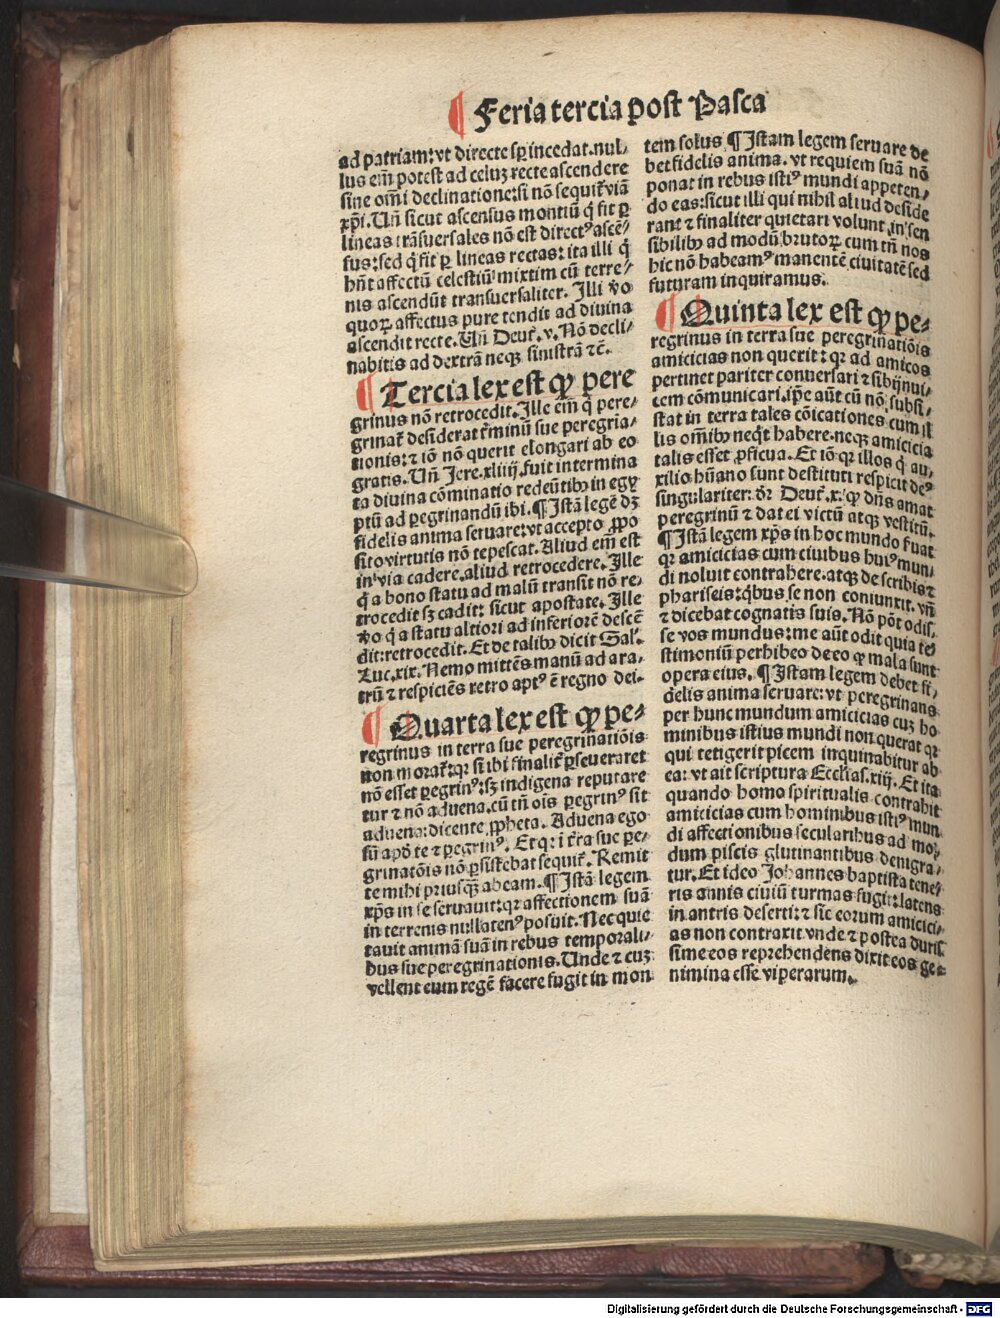 ¶ Feria tercia post Pasca
ad patriam: vt directe sp̱ incedat. nul⸗
lus em̄ potest ad celuꝫ recte ascendere
sine om̄i declinatione: si nō sequit̄ viā
xp̄i. Vn̄ sicut ascensus montiū q̄ fit ꝑ
lineas trāsuersales nō est direct⁹ ascē⸗
sus: sed q̄ fit ꝑ lineas rectas: ita illi q̄
hn̄t affectū celestiū mixtim cū terre⸗
nis ascendūt transuersaliter. Illi ꝟo
quoꝝ affectus pure tendit ad diuina
ascendit recte. Vn̄ Deut̄. v. Nō decli⸗
nabitis ad dextrā neqꝫ sinistrā ⁊c̄.
¶ Tercia lex est ꝙ pere
grinus nō retrocedit. Ille em̄ q̄ pere⸗
grinat̄ desiderat t̄minū sue peregria⸗
tionis: ⁊ iō nō querit elongari ab eo
gratis. Vn̄ Jere. xliiij. fuit intermina
ta diuina cōminatio redeūtibꝫ in egy
ptū ad ꝑegrinandū ibi. ¶ Istā legē dꝫ
fidelis anima seruare: vt accepto ꝓpo
sito virtutis nō tepescat. Aliud em̄ est
in via cadere. aliud retrocedere. Ille
q̄ a bono statu ad malū transit nō re⸗
trocedit sꝫ cadit: sicut apostate. Ille
ꝟo q̄ a statu altiori ad inferiorē descē
dit: retrocedit. Et de talibꝫ dicit Sal̄.
Luc. ix. Nemo mittēs manū ad ara⸗
trū ⁊ respiciēs retro apt⁹ ē regno dei.
¶ Quarta lex est ꝙ pe⸗
regrinus in terra sue peregrinatiōis
non morat̄: qꝛ si ibi finalit̄ ꝑseueraret
nō esset ꝑegrin⁹: sꝫ indigena reputare
tur ⁊ nō aduena. cū tn̄ oīs ꝑegrin⁹ sit
aduena: dicente ꝓpheta. Aduena ego
sū apd̄ te ⁊ ꝑegrin⁹. Et qꝛ ī t̄ra sue pe⸗
grinatōis nō ꝑsistebat sequit̄. Remit
te mihi priusqꝫ̄ abeam. ¶ Istā legem
xp̄s in se seruauit: qꝛ affectionem suā
in terrenis nullaten⁹ posuit. Nec quie
tauit animā suā in rebus temporali⸗
bus sue peregrinationis. Unde ⁊ cuꝫ
vellent eum regē facere fugit in mon
tem solus ¶ Istam legem seruare de
bet fidelis anima. vt requiem suā nō
ponat in rebus isti⁹ mundi appeten⸗
do eas: sicut illi qui nihil aliud deside
rant ⁊ finaliter quietari volunt in sen
sibilibꝫ ad modū brutoꝝ cum tn̄ nos
hic nō habeam⁹ manentē ciuitatē sed
futuram inquiramus.
¶ Quinta lex est ꝙ pe⸗
regrinus in terra sue peregrinatiōis
amicicias non querit: qꝛ ad amicos
pertinet pariter conuersari ⁊ sibijnui⸗
cem cōmunicari. ip̄e aūt cū nō subsi⸗
stat in terra tales cōicationes cum il
lis om̄ibꝫ neqͥt habere. neqꝫ amicicia
talis esset ꝓficua. Et iō qꝛ illos q̄ au⸗
xilio hūano sunt destituti respicit de⁹
singulariter: vt̄ Deut̄. x. ꝙ dn̄s amat
peregrinū ⁊ dat ei victū atqꝫ vestitū.
¶ Istā legem xp̄s in hoc mundo fuat
qꝛ amicicias cum ciuibus hui⁹ mun⸗
di noluit contrahere. atqꝫ de scribis ⁊
phariseis: qͥbus se non coniunxit. vn̄
⁊ dicebat cognatis suis. Nō pōt odis⸗
se vos mundus: me aūt odit quia te⸗
stimoniū perhibeo de eo ꝙ mala sunt
opera eius. ¶ Istam legem debet fi⸗
delis anima seruare: vt peregrinans
per hunc mundum amicicias cuꝫ ho
minibus istius mundi non querat qꝛ
qui tetigerit picem inquinabitur ab
ea: vt ait scriptura Eccl̄ias. xiij. Et ita
quando homo spiritualis contrahit
amicicias cum hominibus isti⁹ mun
di affectionibus secularibus ad mo⸗
dum piscis glutinantibus denigra⸗
tur. Et ideo Johannes baptista tene⸗
ris annis ciuiū turmas fugit: latens
in antris deserti: ⁊ sic eorum amicici⸗
as non contraxit vnde ⁊ postea duris
sime eos reprehendens dixit eos ge⸗
nimina esse viperarum.
Digitalisierung gefördert durch die Deutsche Forschungsgemeinschaft - DFG